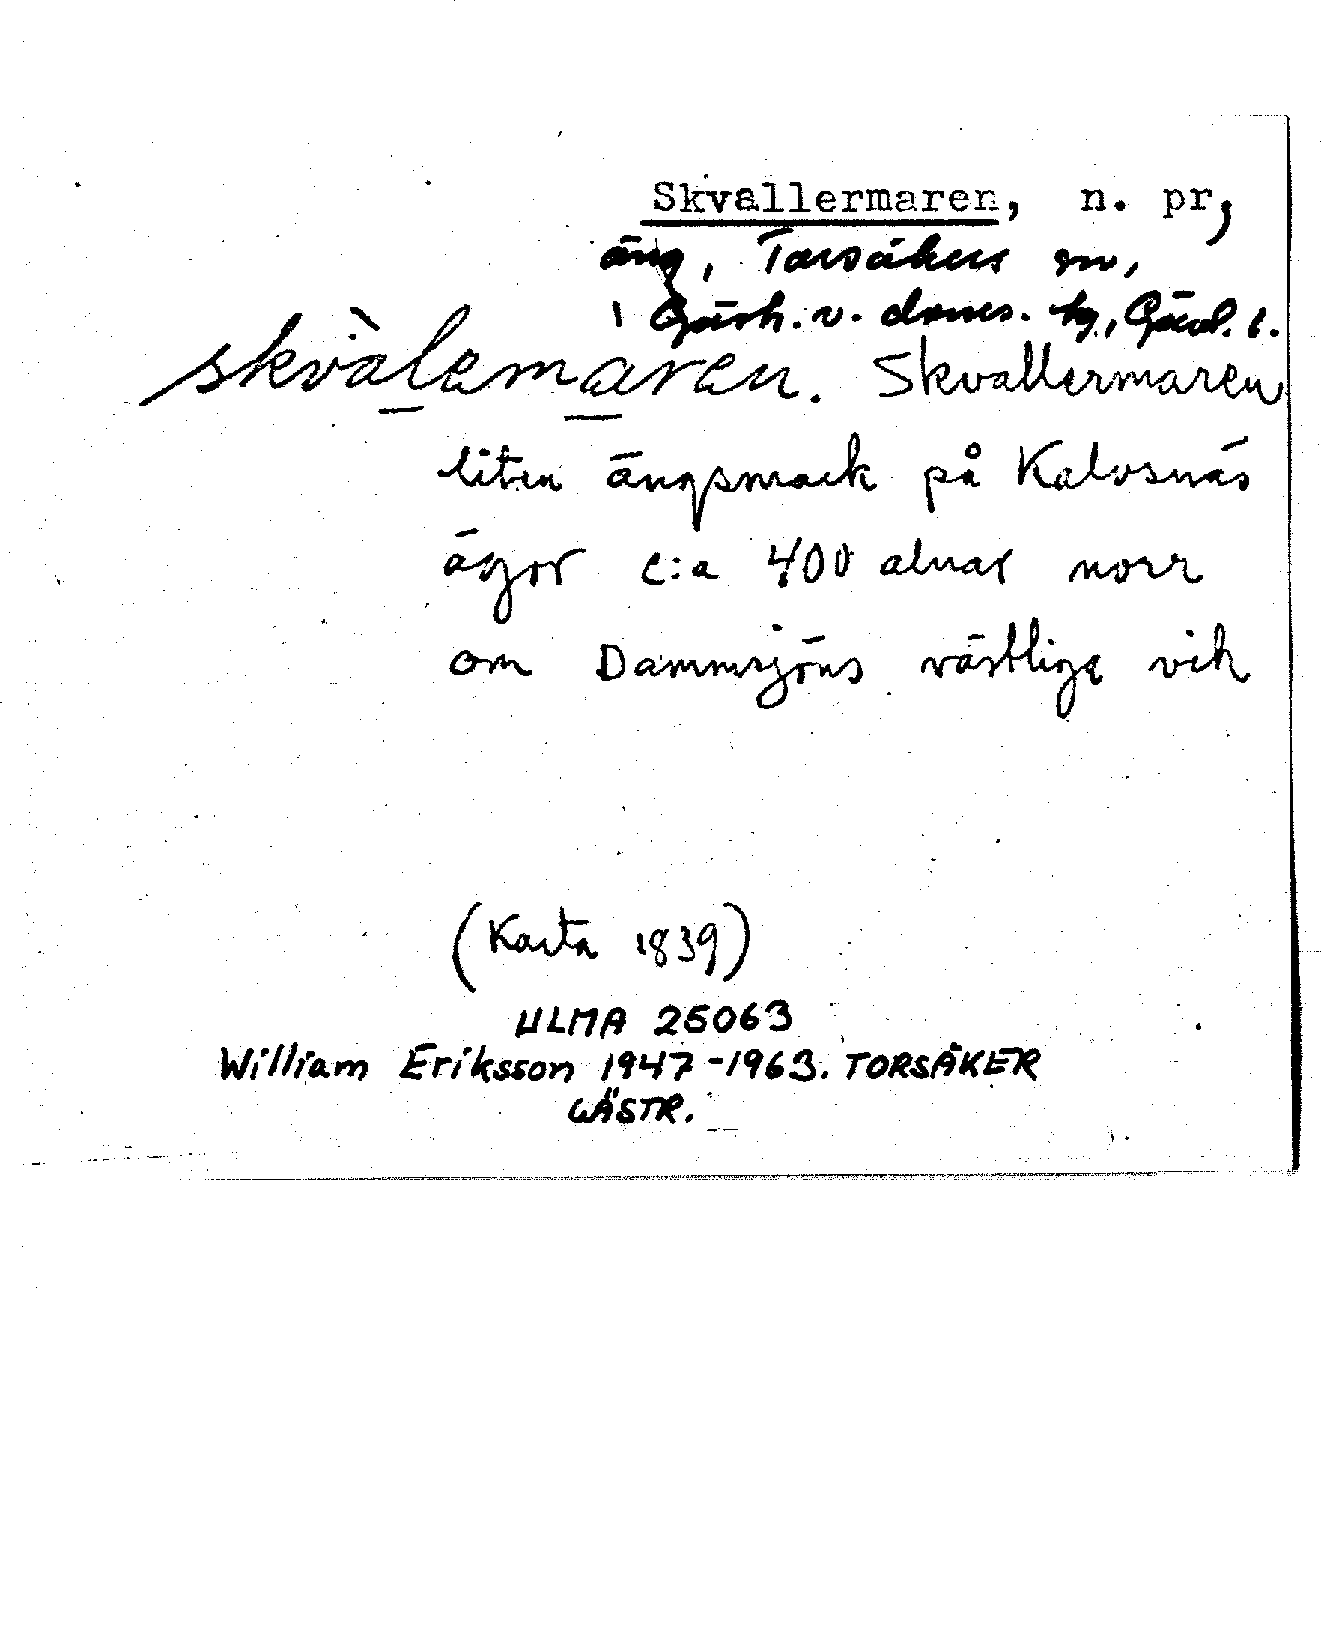 Skvallermaren, n. pr,
äng, Torsåkers sn,
Gästr. v. doms. tg, Gävl. l.
skvàlemaren. Skvallermaren
liten ängsmark på Kalvsnäs
ägor c:a 400 alnar norr
om Dammsjöns västliga vik
(Karta 1839)
ULMA 25063
William Eriksson 1947-1963. TORSÅKER
GÄSTR.